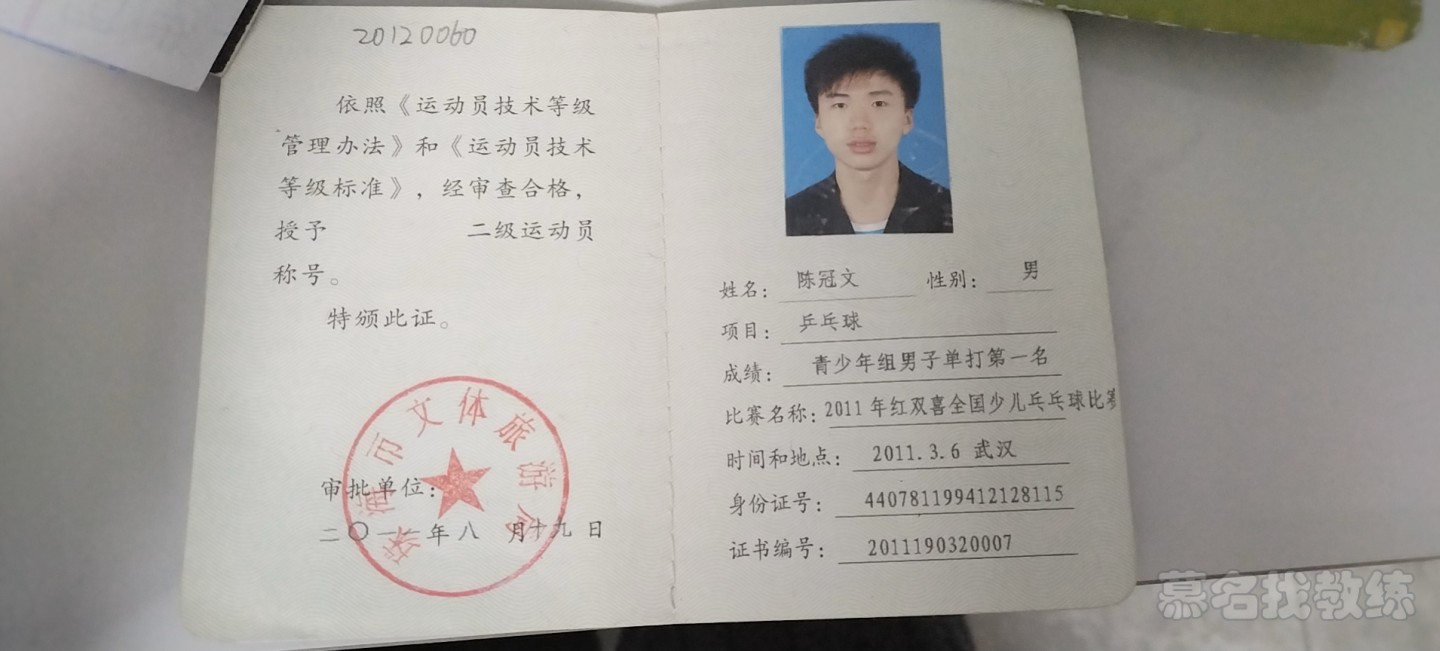 20120060
依照《运动员技术等级
管理办法》和《运动员技术
等级标准》，经审查合格，
授予 二级运动员
称号。
特颁此证。
市文体旅游
审批单位：
二〇一一年八月十九日
姓名： 陈冠文 性别： 男
项目： 乒乓球
成绩： 青少年组男子单打第一名
比赛名称：2011年红双喜全国少儿乒乓球比赛
时间和地点： 2011.3.6 武汉
身份证号： 440781199412128115
证书编号： 2011190320007
慕名找教练